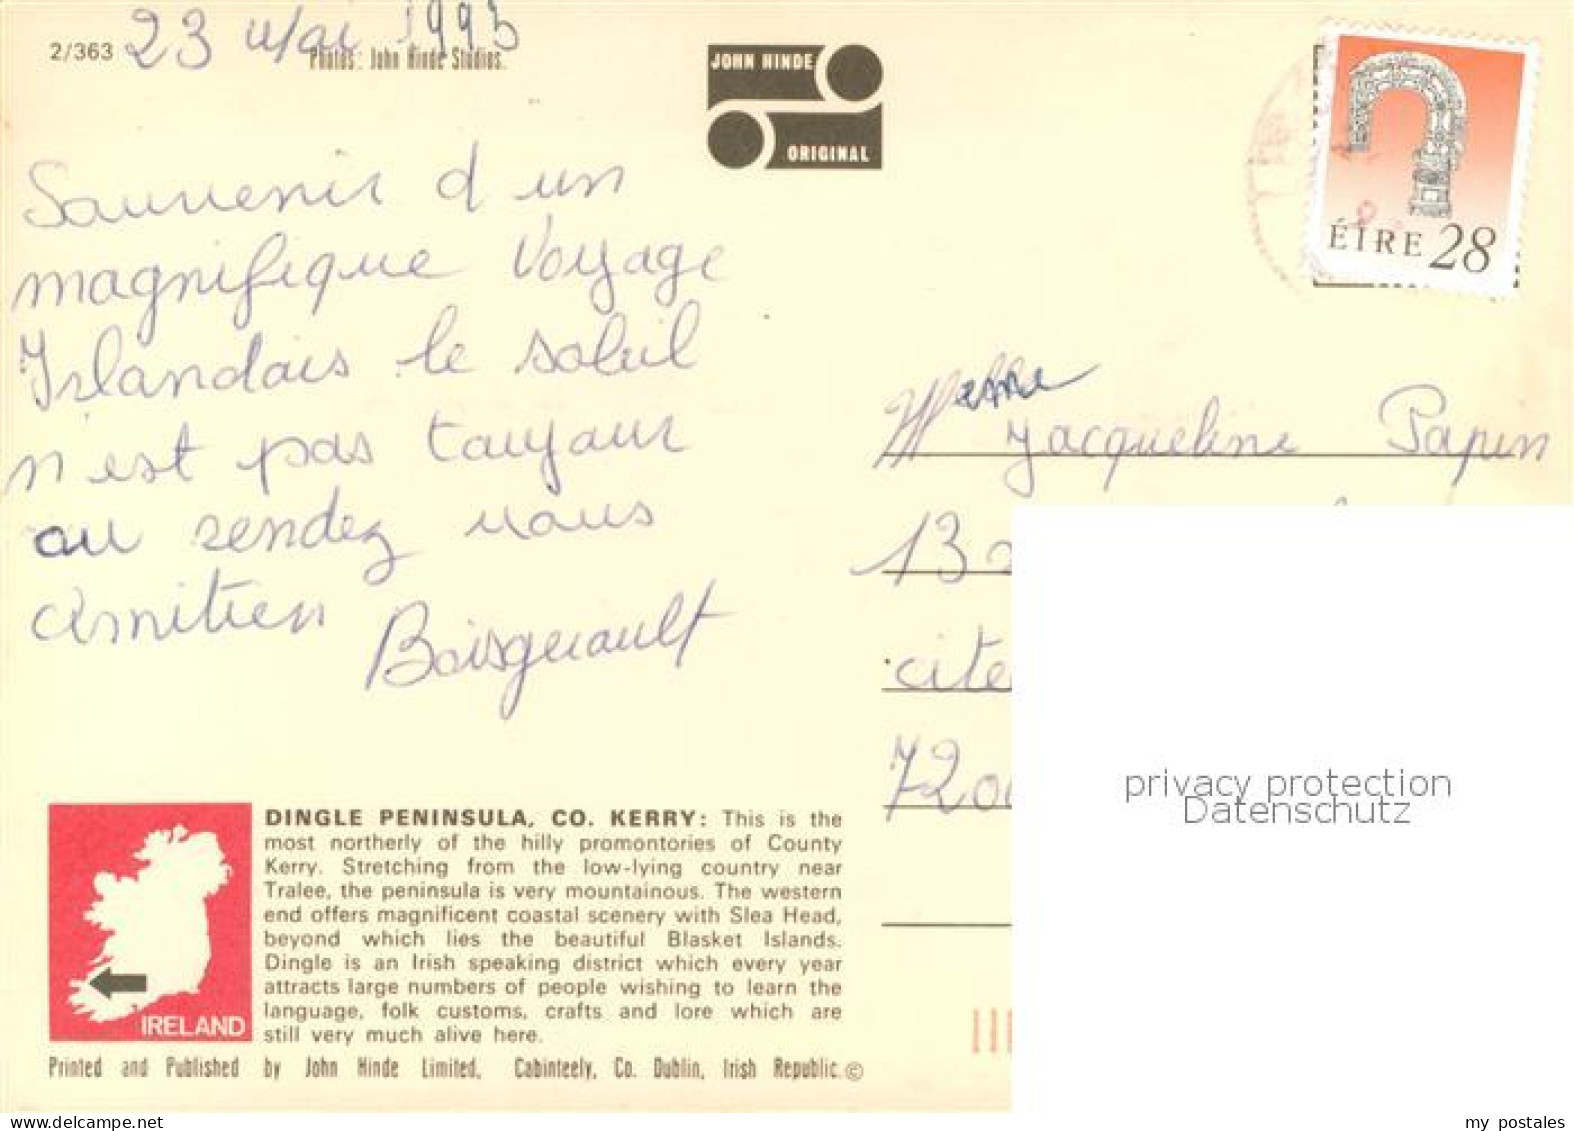 23 Mai 1993
2/363
Photos: John Hinde Studios.
JOHN HINDE
ORIGINAL
ÉIRE 28
Souvenir d'un
magnifique Voyage
Irlandais le soleil
n'est pas toujours
au rendez vous
Amitien
Boisguerault
Jacqueline Papin
13
cite
7200
privacy protection
Datenschutz
DINGLE PENINSULA, CO. KERRY: This is the
most northerly of the hilly promontories of County
Kerry. Stretching from the low-lying country near
Tralee, the peninsula is very mountainous. The western
end offers magnificent coastal scenery with Slea Head,
beyond which lies the beautiful Blasket Islands.
Dingle is an Irish speaking district which every year
attracts large numbers of people wishing to learn the
language, folk customs, crafts and lore which are
still very much alive here.
IRELAND
Printed and Published by John Hinde Limited, Cabinteely, Co. Dublin, Irish Republic.©
my postales